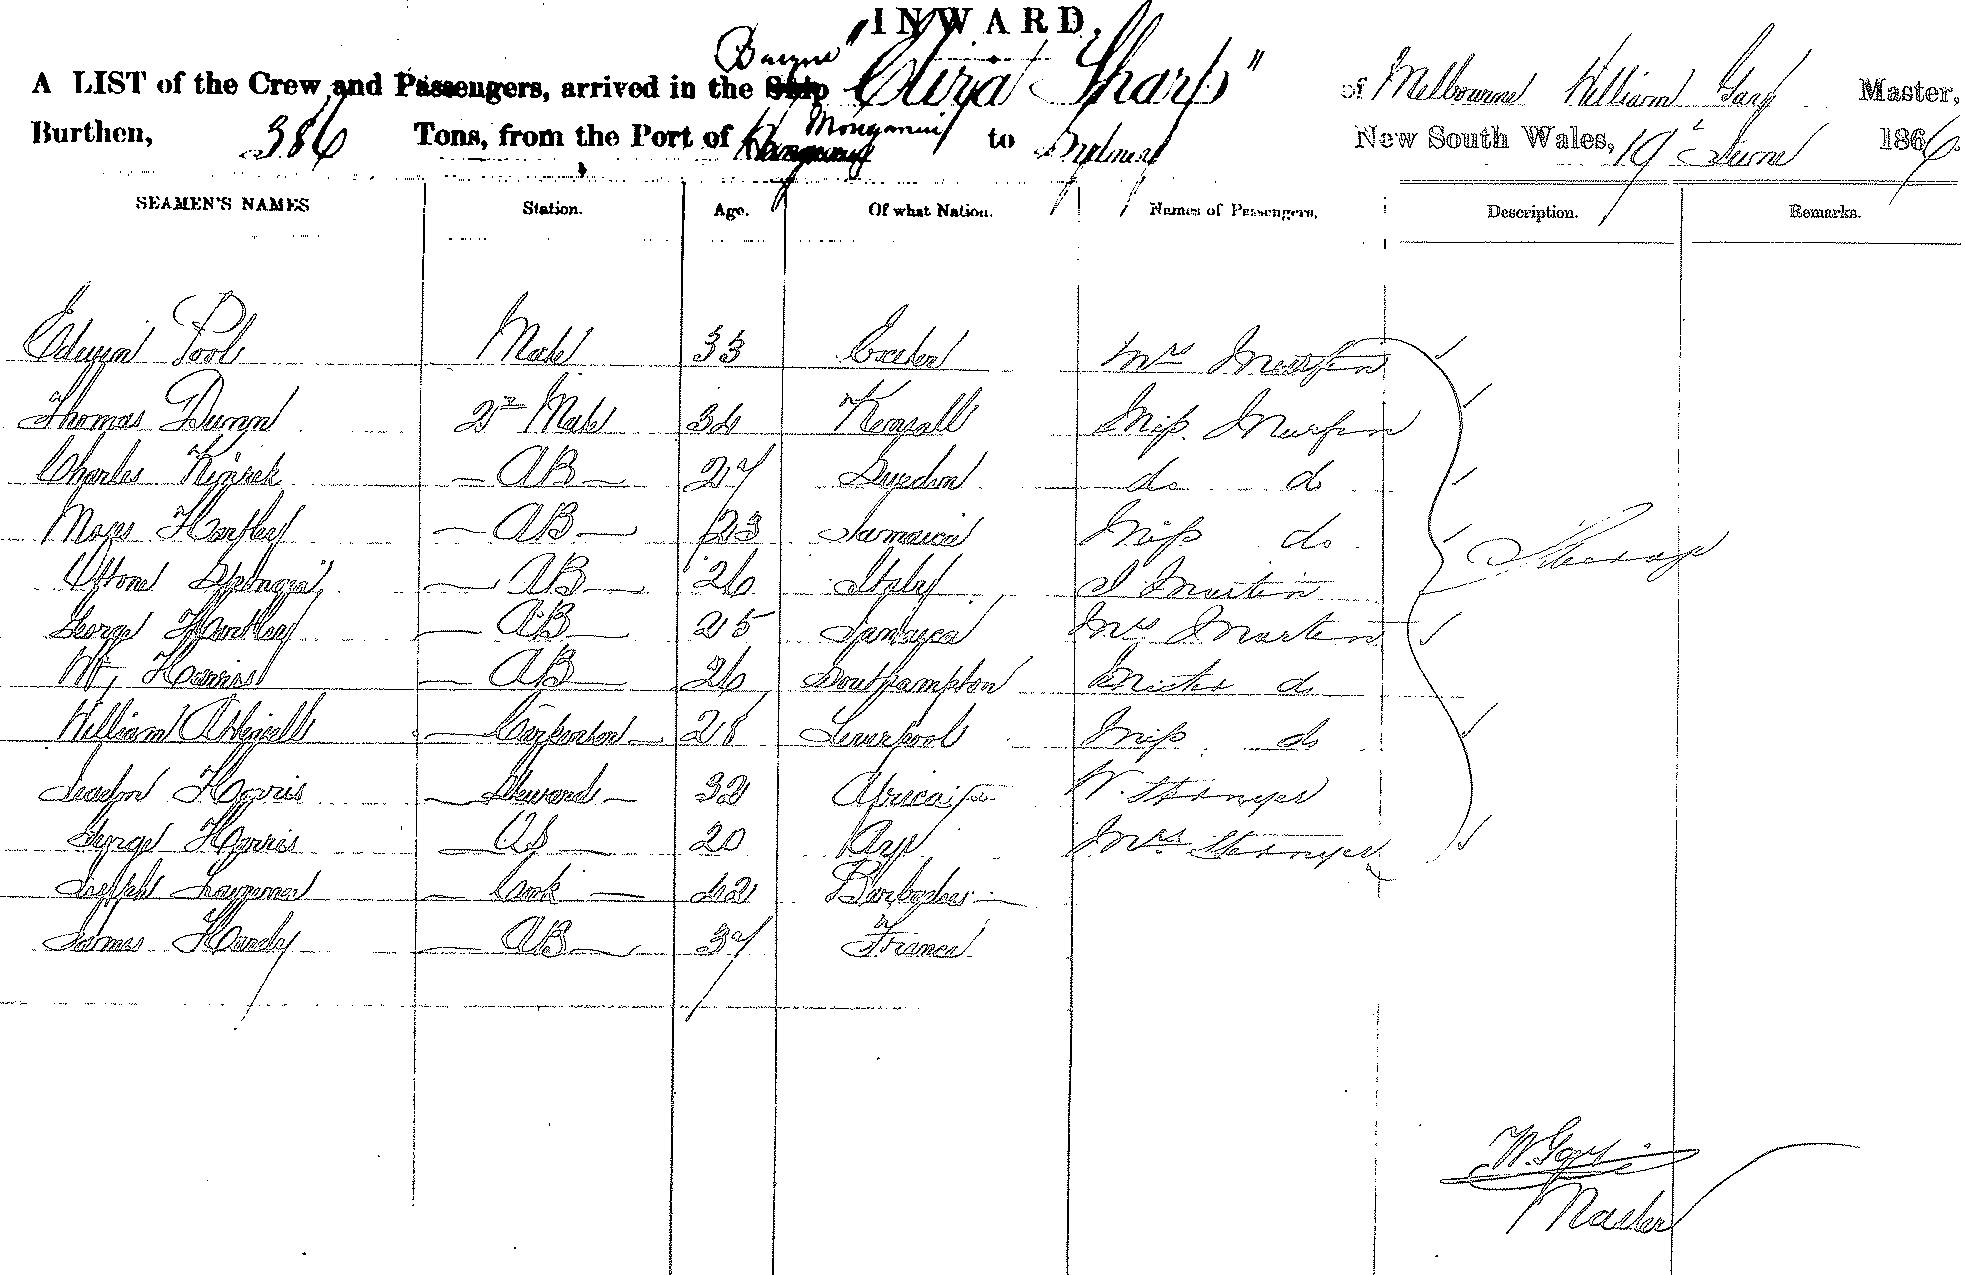 INWARD.
A LIST of the Crew and Passengers, arrived in the Ship Barque "Eliza Sharp" of Melbourne William Gay Master,
Burthen, 386 Tons, from the Port of to Sydney New South Wales, 19th June 1866
SEAMEN'S NAMES Station. Age. Of what Nation. Names of Passengers. Description. Remarks.
Edwin Pool Mate 33 Exeter Mrs
Thomas 2nd Mate 34 Miss
Charles AB 27 Sweden do do
Moses Hartley AB 23 Jamaica Miss do Steerage
AB 26 Italy J Martin
George Hartley AB 25 Jamaica Mrs Martin
Wm Harris AB 26 Southampton do
William Carpenter 28 Liverpool Miss do
Harris Steward 32 Africa W.
George Harris OS 20 Mrs
Joseph Cook 42 Barbadoes
James Handy AB 37 France
W. Gay
Master